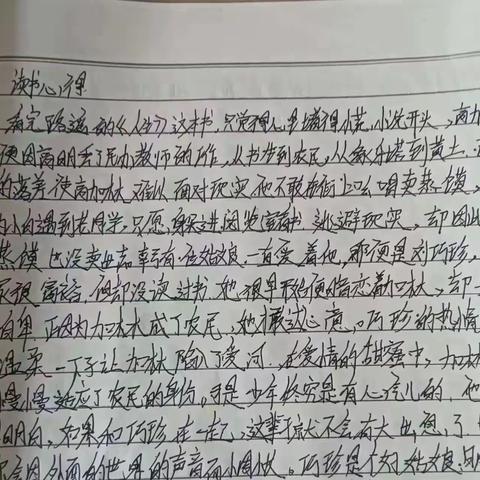 读书心得
看完路遥的《人生》这本书,只觉得心里堵得慌,小说开头,高加
便因高明丢了民办教师的工作,从书生到农民,从象牙塔到黄土
的落差使高加林难以面对现实他不敢在街上吆喝卖蒸馍,
的小白遇到老同学,只愿躲进阅览室看书逃避现实,却因此
蒸馍也没卖出去幸有一位姑娘一直爱着他,那便是刘巧珍,
家很富裕,但却没读过书她很早开始便暗恋着加林,却一
自卑正因为加林成了农民,她才敢心意。巧珍的热情
温柔一下子让加林陷入了爱河,在爱情的甜蜜中,加林
慢慢适应了农民的身份。可是少年终究是有心气儿的,他
明白,如果和巧珍在一起,这辈子就不会有大出息了
会因外面的世界的声音而。巧珍是个好姑娘,